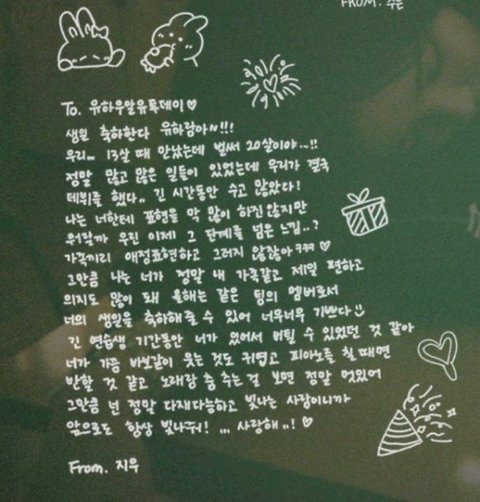 FROM. 주은
To. 유하우알유투데이♡
생일 축하한다 유하람아~!!!
우리... 13살 때 만났는데 벌써 20살이야...!!
정말 많고 많은 일들이 있었는데 우리가 결국
데뷔를 했다.. 긴 시간동안 수고 많았다!
나는 너한테 표현을 막 많이 하진 않지만
뭐랄까 우린 이제 그 단계를 넘은 느낌..?
가족끼리 애정표현하고 그러지 않잖아ㅋㅋㅋ♡
그만큼 나는 너가 정말 내 가족같고 제일 편하고
의지도 많이 돼 올해는 같은 팀의 멤버로서
너의 생일을 축하해줄 수 있어 너무너무 기쁘다
긴 연습생 기간동안 너가 있어서 버틸 수 있었던 것 같아
너가 가끔 바보같이 웃는 것도 귀엽고 피아노를 칠 때면
반할 것 같고 노래랑 춤 추는 걸 보면 정말 멋있어
그만큼 넌 정말 다재다능하고 빛나는 사람이니까
앞으로도 항상 빛나줘! ... 사랑해..! ♡
From. 지우